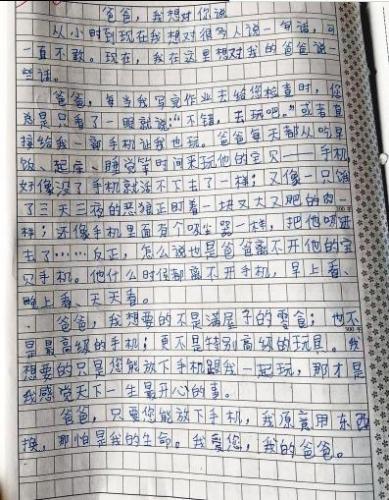 爸爸,我想对你说
从小时到现在我想对很多人说一句话,可
一直不敢。现在,我在这里想对我的爸爸说一
些话。
爸爸,每当我写完作业去给您检查时,你
总是只看了一眼就说:“不错,去玩吧。”或者直
接给我一部手机让我也玩。爸爸每天都从吃早
饭、起床、睡觉等时间来玩他的宝贝——手机,
好像没了手机就活不下去了一样;又像一只饿
了三天三夜的恶狼正盯着一块又大又肥的肉一
样;还像手机里面有个吸尘器一样,把他吸进
去了……反正,怎么说也是爸爸离不开他的宝
贝手机。他什么时候都离不开手机,早上看、
晚上看、天天看。
爸爸,我想要的不是满屋子的零食;也不
是最高级的手机;更不是特别高级的玩具。我
想要的只是您能放下手机跟我一起玩,那才是
我感觉天下一生最开心的事。
爸爸,只要您能放下手机,我愿意用东西
换,那怕是我的生命。我爱您,我的爸爸。
300